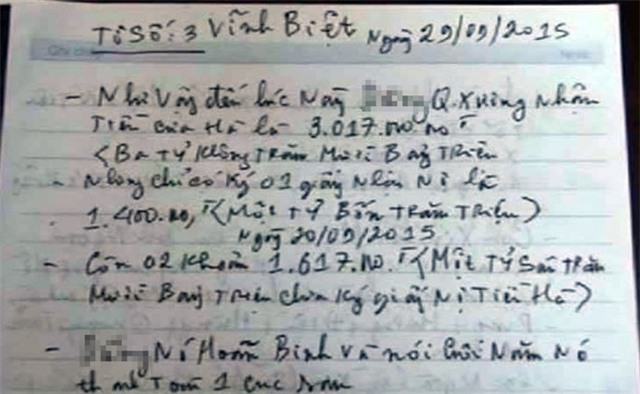 Tờ Số: 3 Vĩnh Biệt Ngày 29/09/2015
- Như Vậy đến lúc Này Q. Xương Nhận
Tiền của Hà là 3.017.000.000đ
<Ba Tỷ Không Trăm Mười Bảy Triệu
- Nhưng chỉ có Ký 01 giấy Nhận Nợ là
1.400.000, đ <Một Tỷ Bốn Trăm Triệu>
Ngày 20/09/2015
- Còn 02 Khoản 1.617.000 đ <Một Tỷ Sáu trăm
Mười Bảy Triệu chưa Ký giấy Nợ Tiền Hà>
- Nó Bình và nói Cuối Năm Nó
1 cục